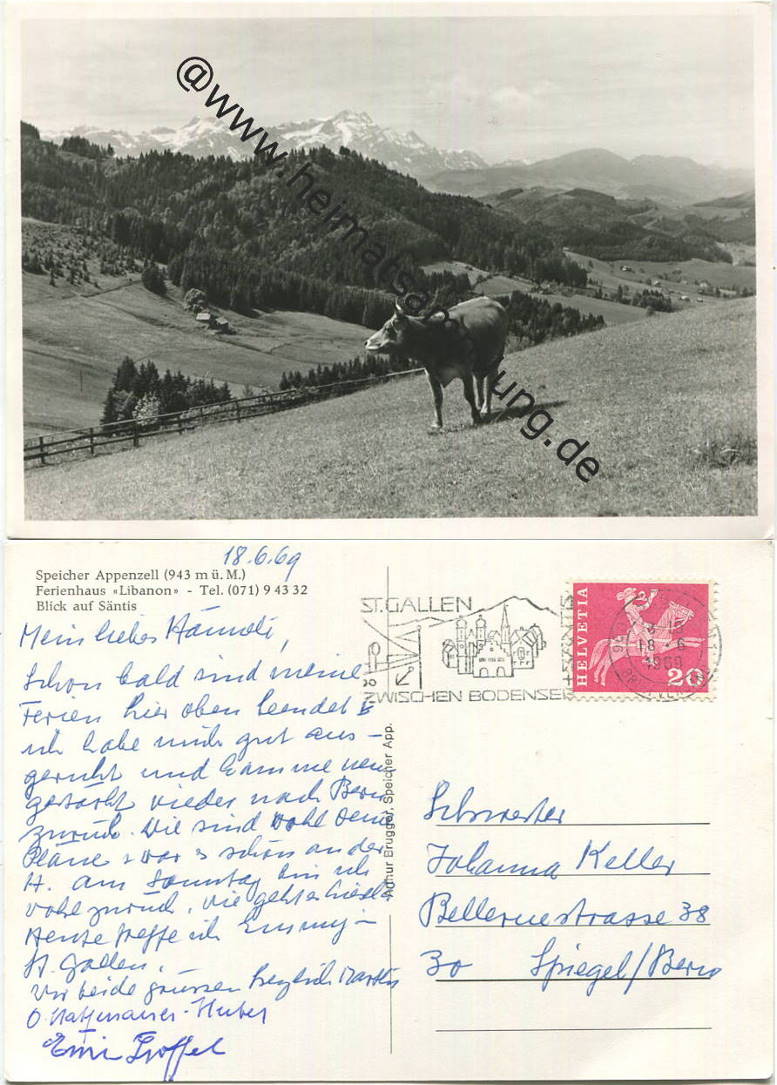 @www.heimatsammlung.de
18.6.69
Speicher Appenzell (943 m ü. M.)
Ferienhaus «Libanon» - Tel. (071) 9 43 32
Blick auf Säntis
Mein liebes Hanneli,
Schon bald sind meine
Ferien hier oben beendet &
ich habe mich gut aus-
geruht und komme neu
gestärkt wieder nach Bern
zurück. Wie sind wohl Deine
Pläne & war es schön an der
H. am Sonntag bin ich
wohl zurück, wie geht es
Heute treffe ich Emmy in
St. Gallen.
Wir beide grüssen herzlich
Arthur Brugger, Speicher App.
ST. GALLEN
ZWISCHEN BODENSEE + SÄNTIS
HELVETIA
20
Schwester
Johanna Keller
Bellevuestrasse 38
30 Spiegel/Bern